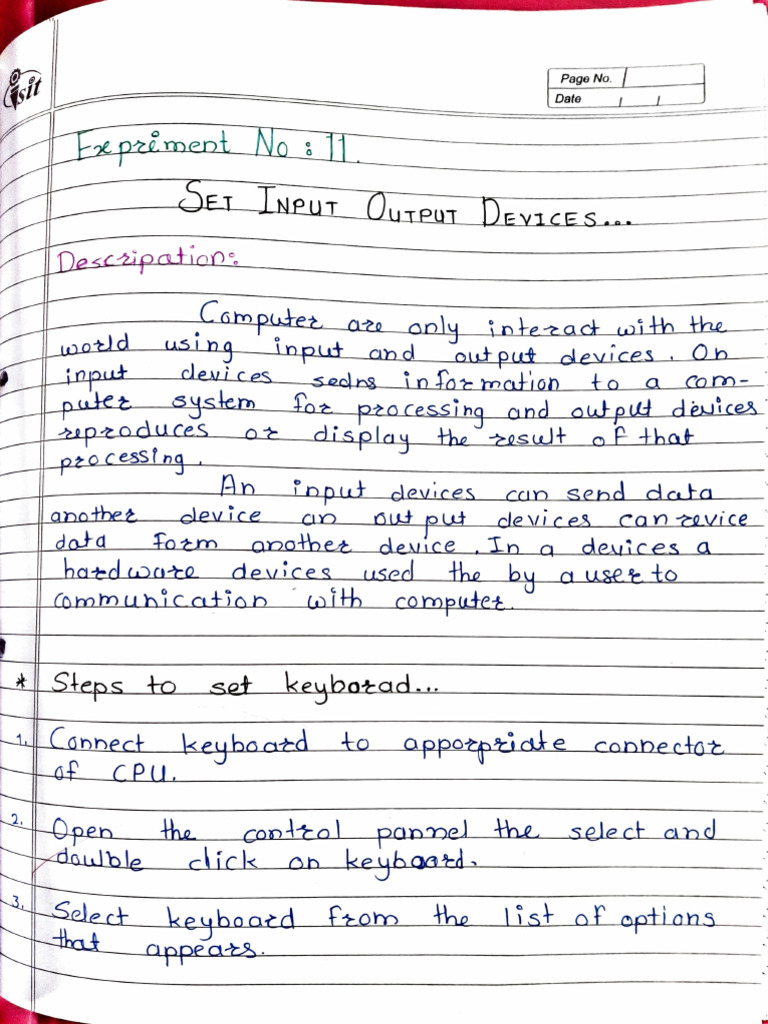 isit
Page No.
Date / /
Expriment No : 11.
SET INPUT OUTPUT DEVICES...
Descripation:
Computer are only interact with the
world using input and output devices. On
input devices sedns information to a com-
puter system for processing and output devices
reproduces or display the result of that
processing.
An input devices can send data
another device an out put devices can revice
data form another device. In a devices a
hardware devices used the by a user to
communication with computer.
* Steps to set keyborad...
1. Connect keyboard to apporpriate connector
of CPU.
2. Open the control pannel the select and
doulble click on keyboard.
3. Select keyboard from the list of options
that appears.